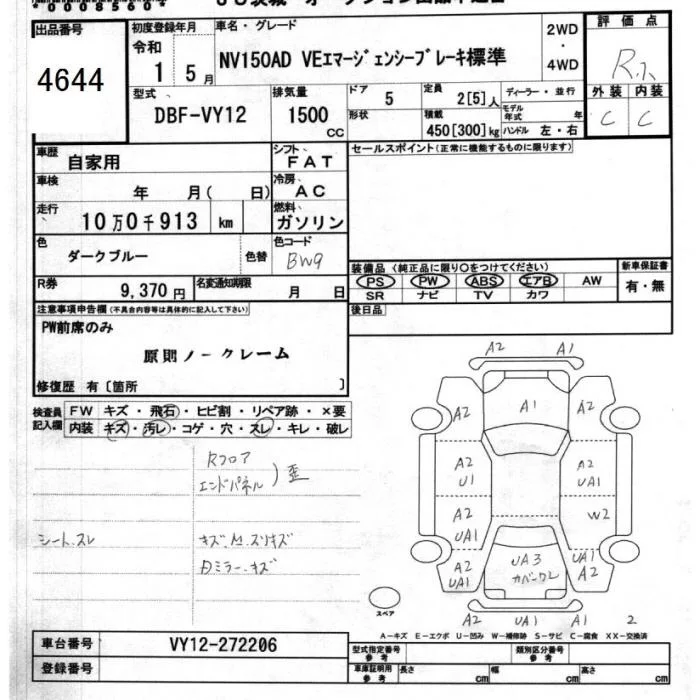 *0008560*
出品番号
4644
初度登録年月
令和
1 5月
車名・グレード
NV150AD VEエマージェンシーブレーキ標準
2WD
・
4WD
評価点
R
外装 内装
C C
型式
DBF-VY12
排気量
1500
cc
ドア
5
形状
定員
2[5]人
積載
450[300]kg
ディーラー・並行
モデル年式 年
ハンドル 左・右
車歴
自家用
シフト
FAT
車検
年 月( 日)
冷房
AC
走行
10万0千913 km
燃料
ガソリン
色
ダークブルー
色替
色コード
BW9
R券
9,370円
名変通知期限
月 日
セールスポイント(正常に機能するものに限ります)
装備品(純正品に限り○をつけてください)
PS PW ABS エアB AW
SR ナビ TV カワ
新車保証書
有・無
後日品
注意事項申告欄(不具合内容等は具体的に記入して下さい)
PW前席のみ
原則ノークレーム
修復歴 有〔箇所 〕
検査員記入欄
FW キズ・飛石・ヒビ割・リペア跡・×要
内装 キズ・汚レ・コゲ・穴・スレ・キレ・破レ
Rフロア
エンドパネル ) 歪
シート.スレ
キズ.M.スリキズ
ミラー.キズ
A2 A1
A2 A1 A2
A2 A2
U1 UA1
A2 W2
UA1
A2 UA3 UA1
UA1 カバーワレ A2
スペア
A2 UA1 A1 2
A-キズ E-エクボ U-凹み W-補修跡 S-サビ C-腐食 XX-交換済
車台番号
VY12-272206
登録番号
型式指定番号
参考
類別区分番号
参考
車庫証明用
参考
長さ cm
幅 cm
高さ cm